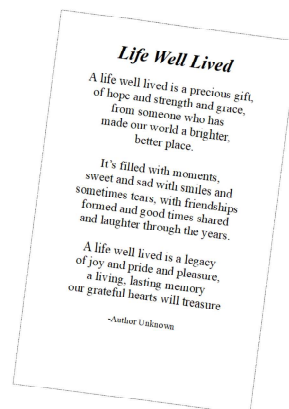 Life Well Lived
A life well lived is a precious gift,
of hope and strength and grace,
from someone who has
made our world a brighter,
better place.
It's filled with moments,
sweet and sad with smiles and
sometimes tears, with friendships
formed and good times shared
and laughter through the years.
A life well lived is a legacy
of joy and pride and pleasure,
a living, lasting memory
our grateful hearts will treasure
-Author Unknown